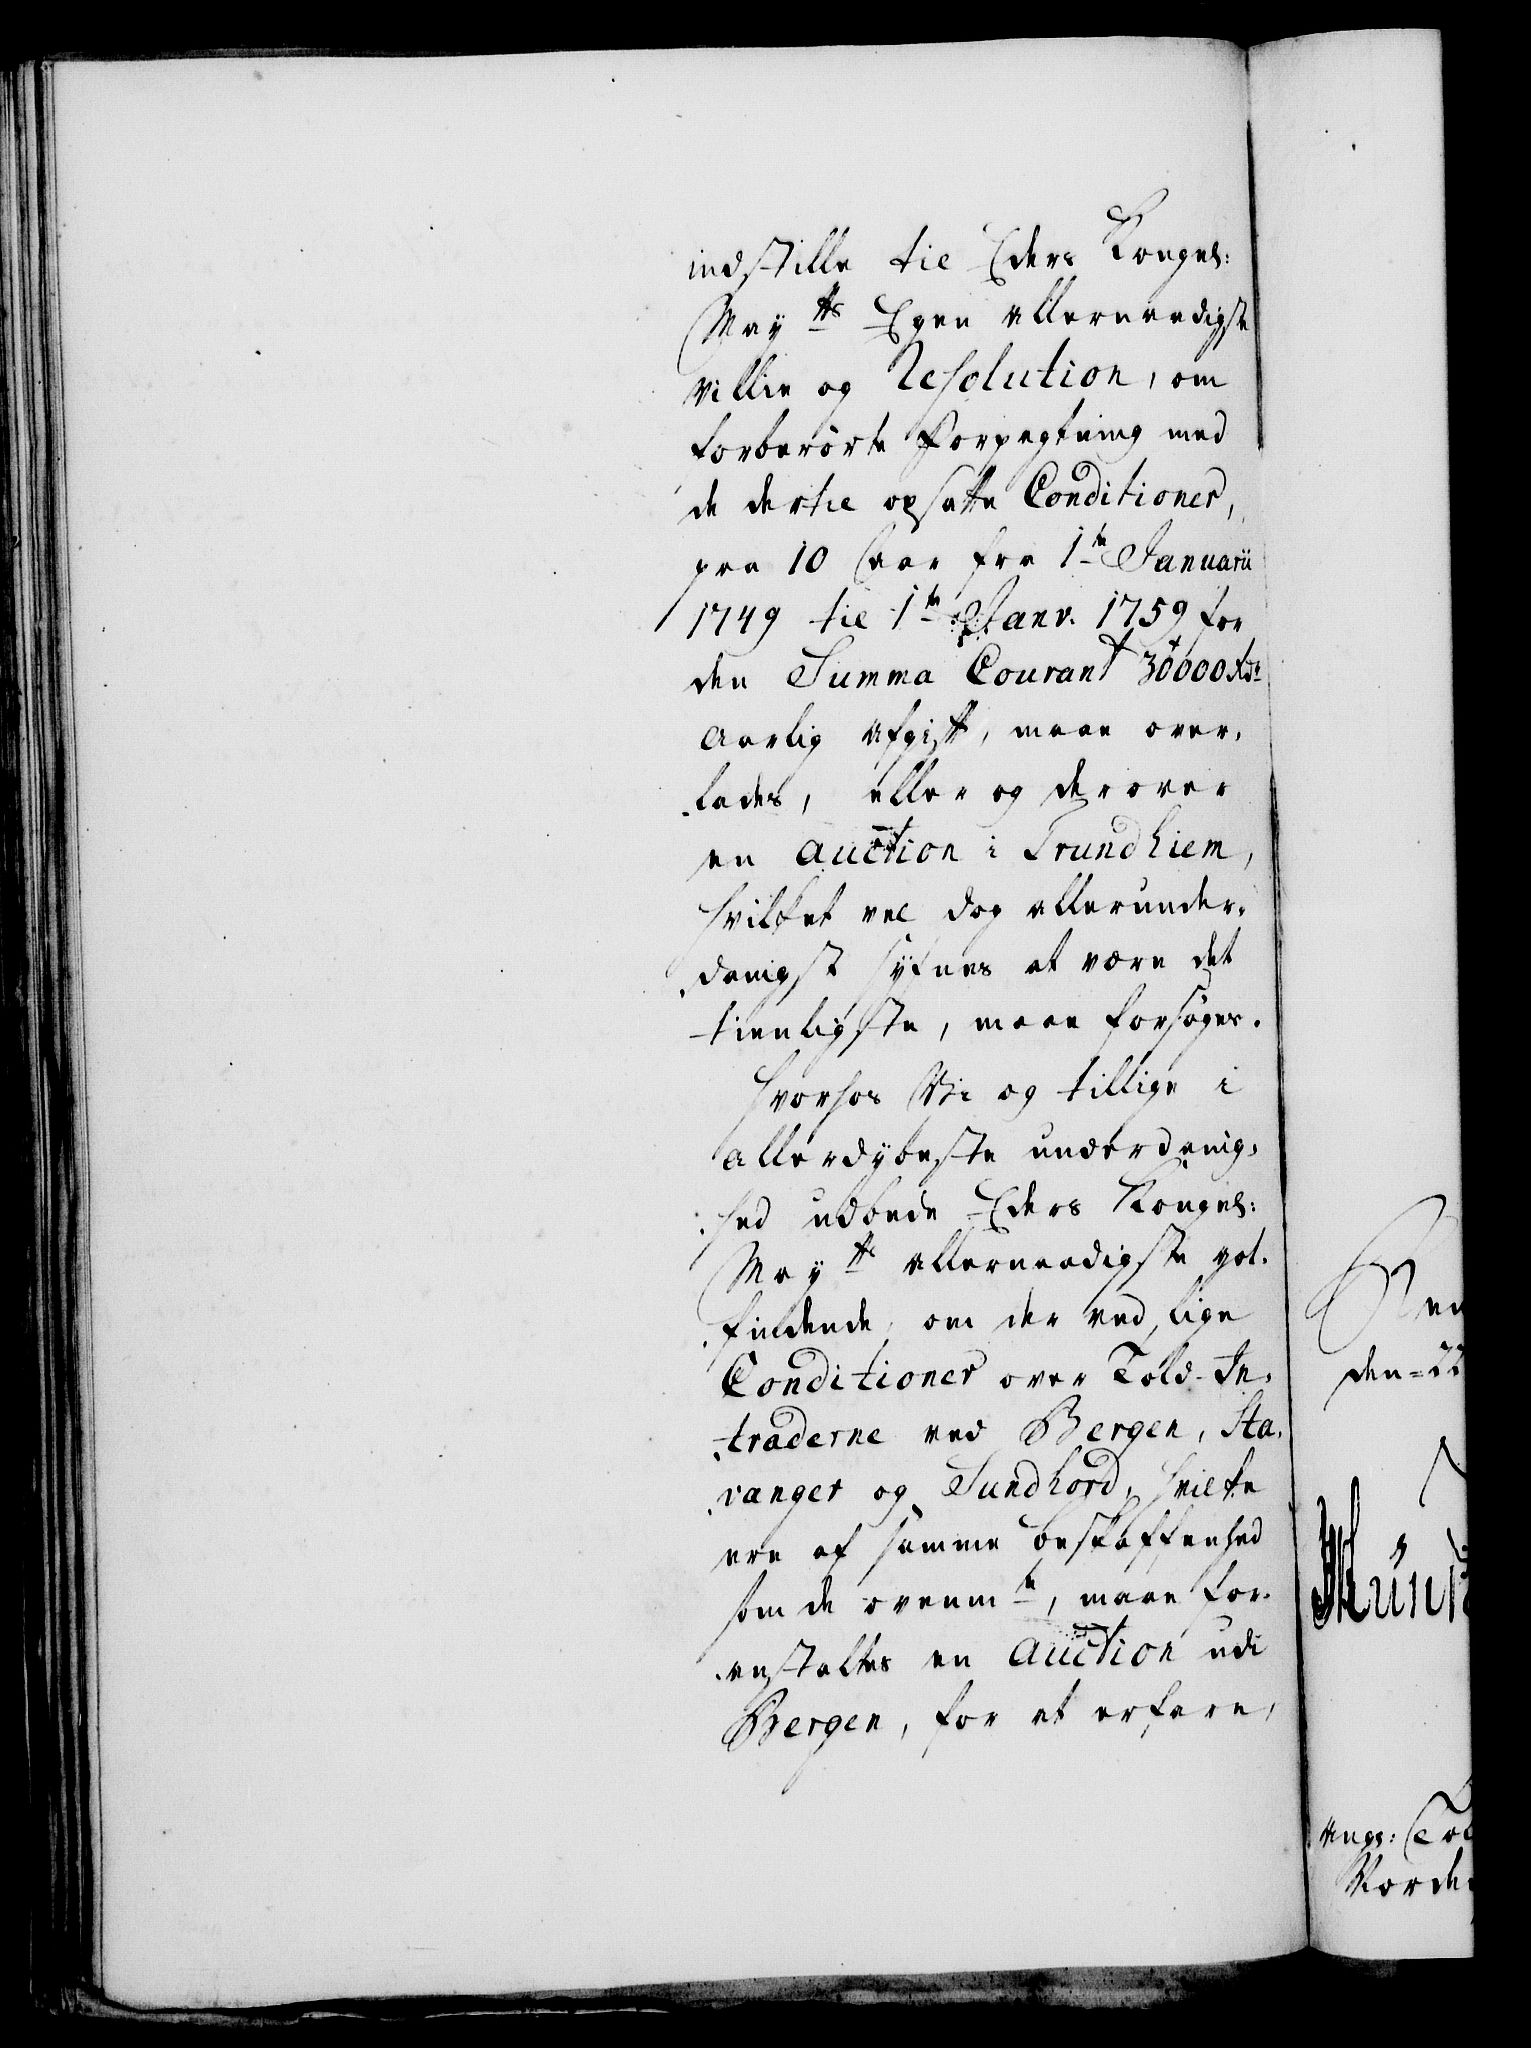 indstille til Eders Kongel:
May tts Egen allernaadigste
villie og Resolution, om
forberørte Forpagtning med
de dertil opsatte Conditioner,
paa 10 Aar fra 1te Januarii
1749 til 1te Janv. 1759 for
den Summa Courant 30000 Rdr
Aarlig Afgift, maae over-
lades, eller og derover
en Auction i Trundhiem,
hvilket vel dog allerunder-
danigst synes at være det
tienligste, maae forsøges.
Hvorhos Vi og tillige i
allerdybeste underdanig-
hed udbede Eders Kongel:
May tts allernaadigste got-
findende, om der ved lige
Conditioner over Told-In-
traderne ved Bergen, Sta-
vanger og Sundhord, hvilke
ere af samme beskaffenhed
som de ovenmte, maae for-
anstaltes en Auction udi
Bergen, for at erfare,
den 22